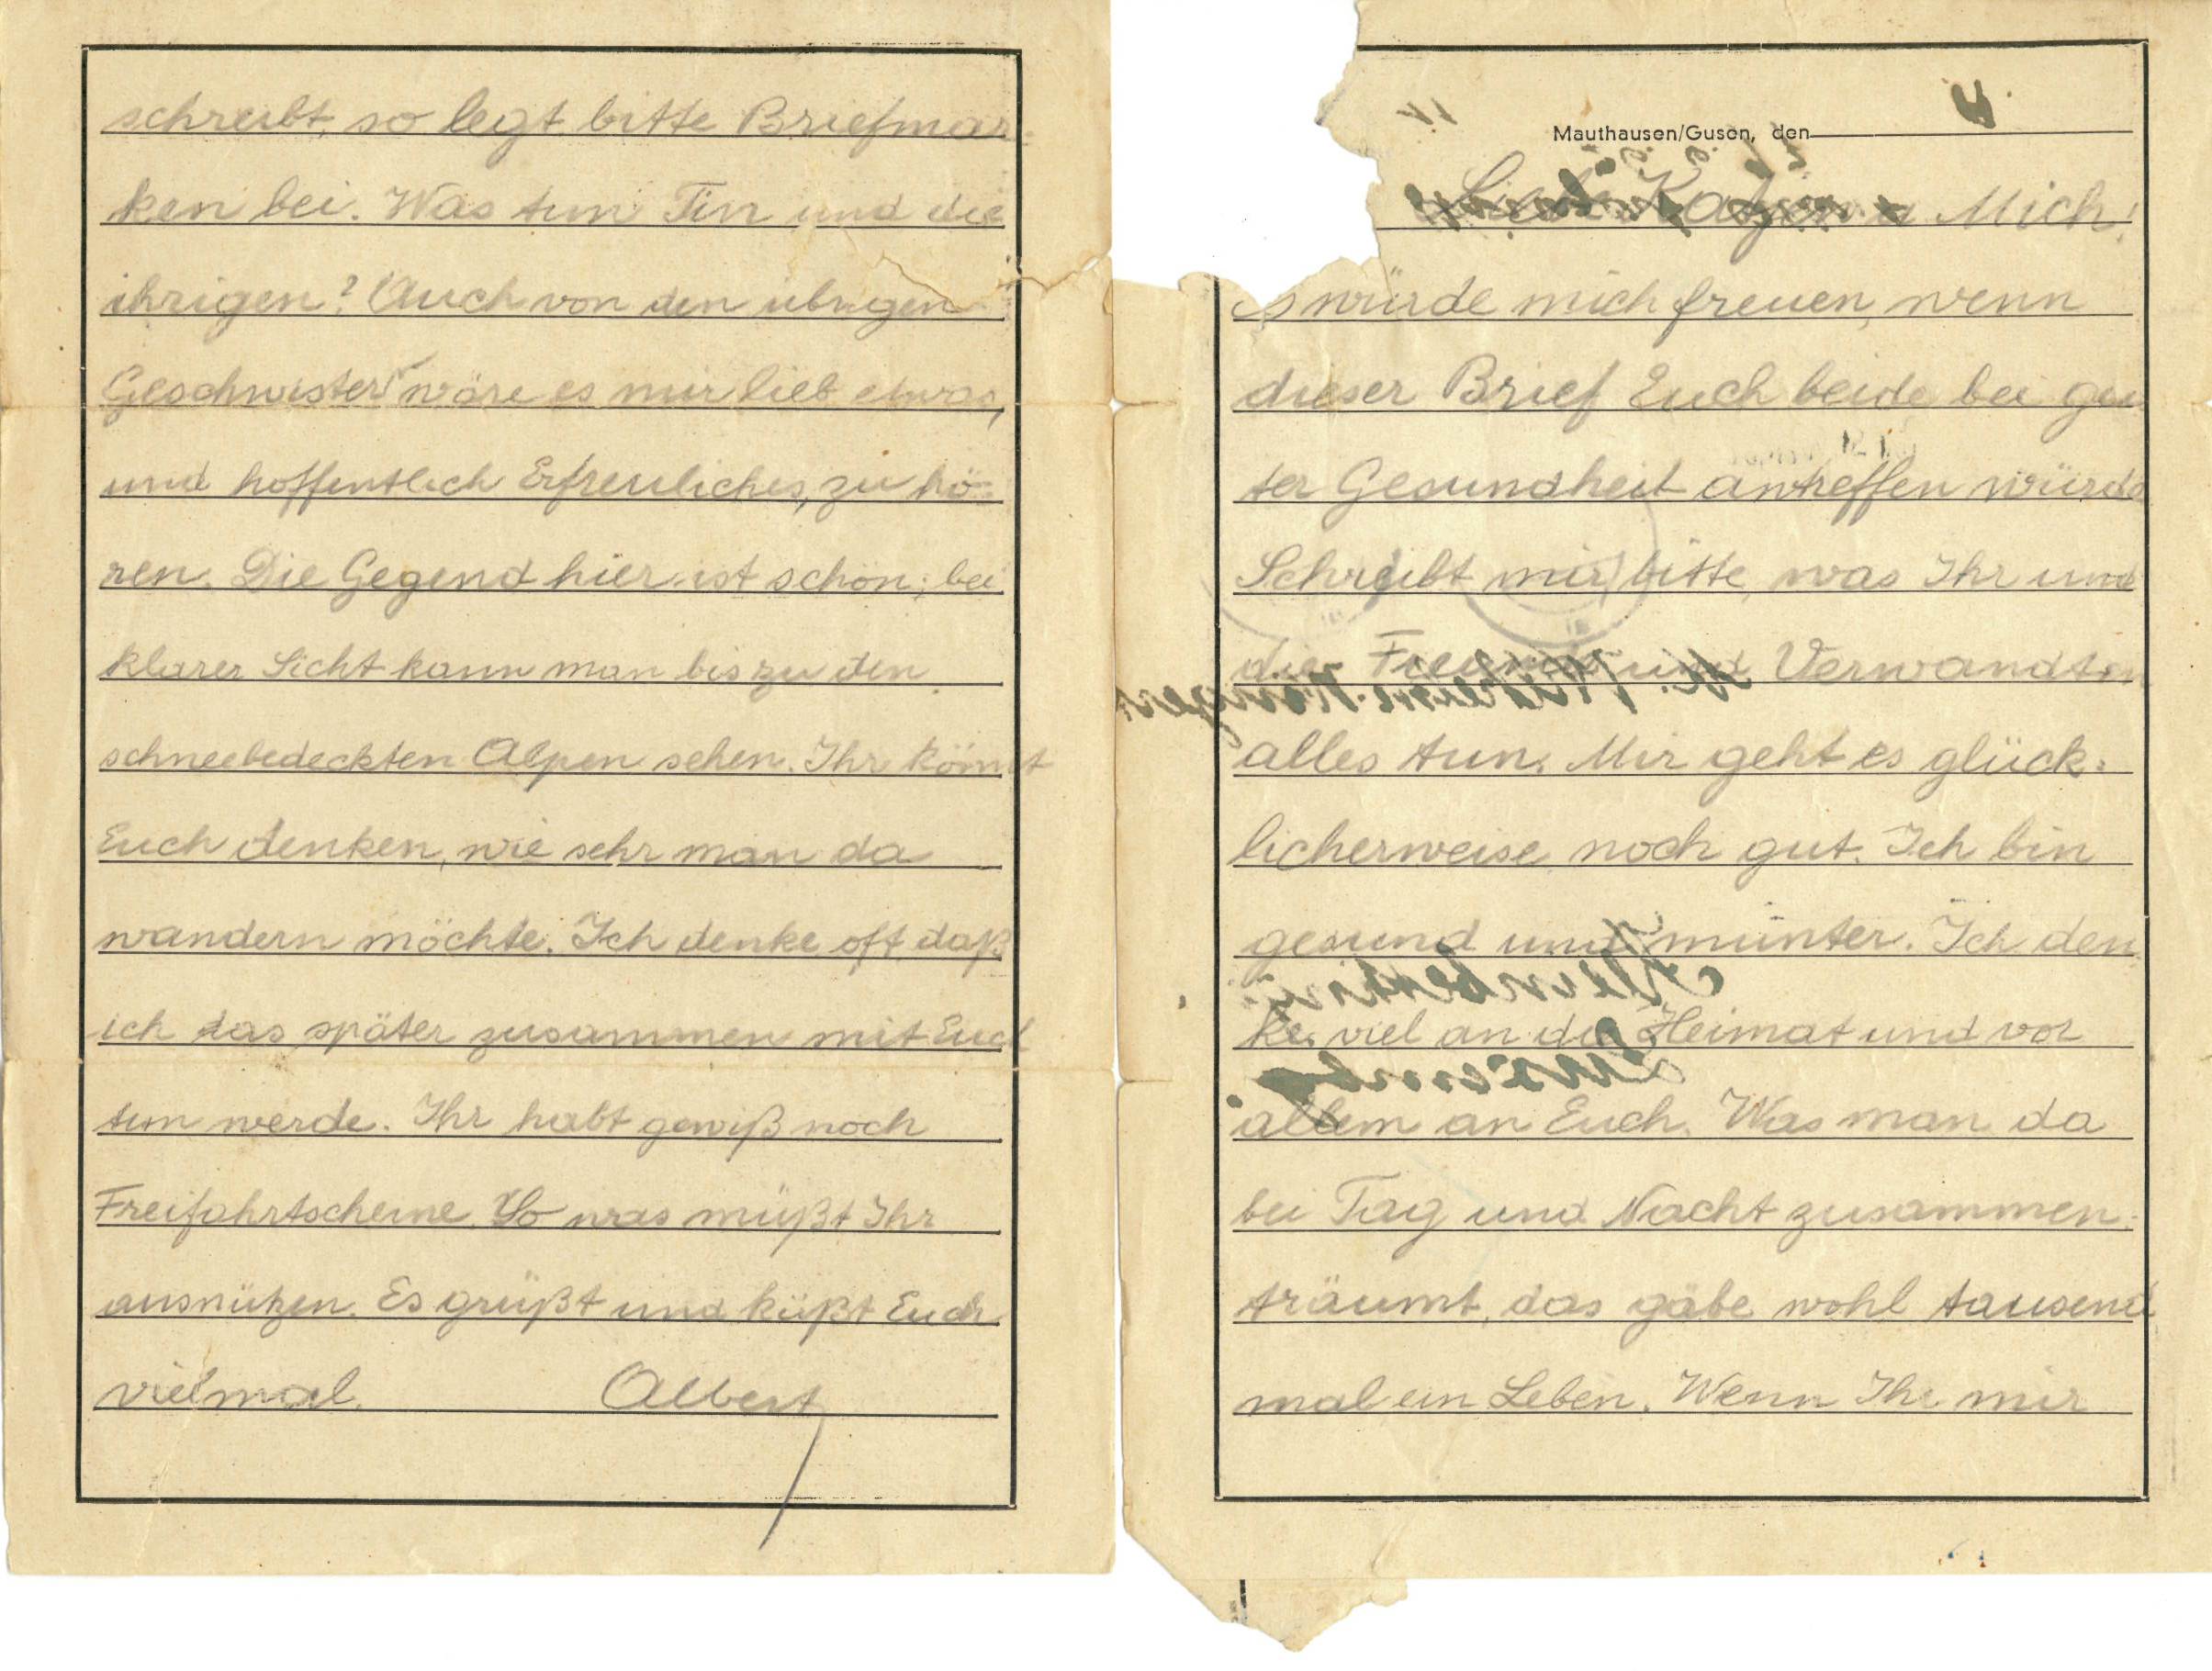 Mauthausen/Gusen, den
Mich!
würde mich freuen, wenn
dieser Brief Euch beide bei gu
ter Gesundheit antreffen würde
Schreibt mir bitte, was Ihr und
die Freunde und Verwandten
alles tun. Mir geht es glück-
licherweise noch gut. Ich bin
gesund und munter. Ich den
ke viel an die Heimat und vor
allem an Euch. Was man da
bei Tag und Nacht zusammen-
träumt, das gäbe wohl tausend
mal ein Leben. Wenn Ihr mir
schreibt, so legt bitte Briefmar-
ken bei. Was tun Tin und die
ihrigen? Auch von den übrigen
Geschwistern wäre es mir lieb etwas,
und hoffentlich Erfreuliches, zu hö-
ren. Die Gegend hier ist schön; bei
klarer Sicht kann man bis zu den
schneebedeckten Alpen sehen. Ihr könnt
Euch denken, wie sehr man da
wandern möchte. Ich denke oft daß
ich das später zusammen mit Euch
tun werde. Ihr habt gewiß noch
Freifahrtscheine. So was müßt Ihr
ausnützen. Es grüßt und küßt Euch
vielmal. Albert